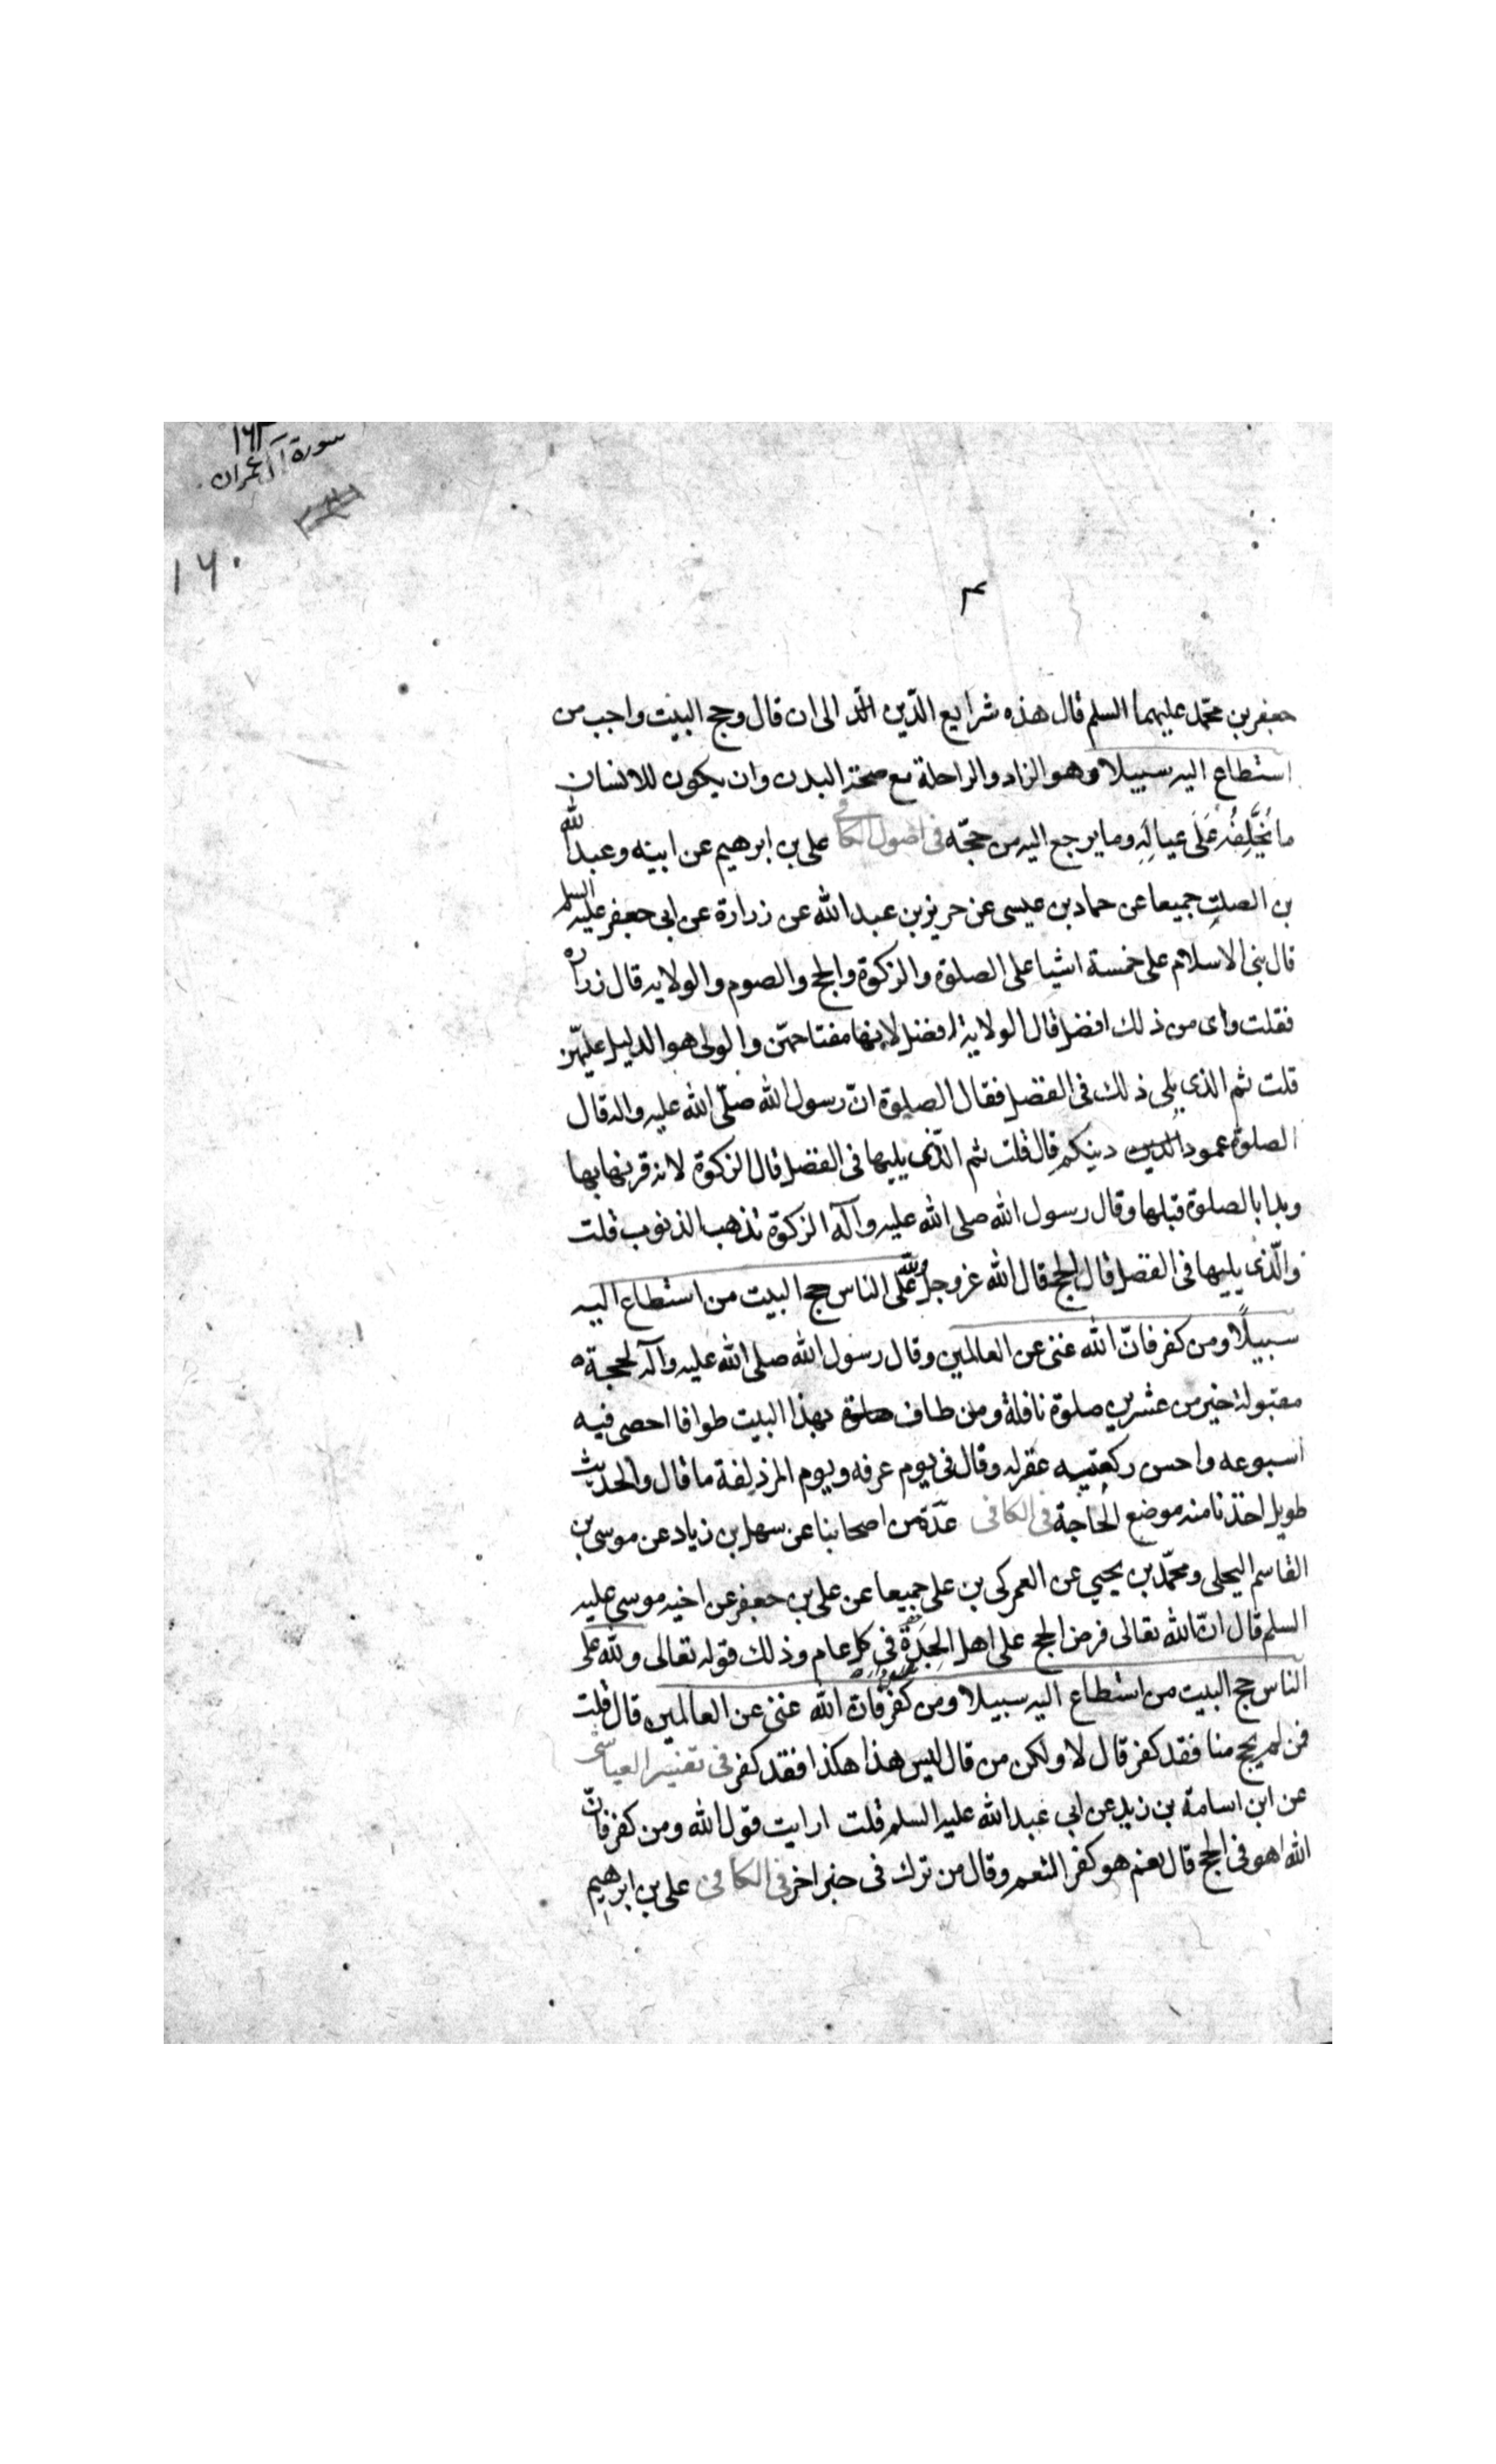 ١٦٣
سورة آل عمران
١٦٠
جعفر بن محمّد عليهما السلم قال هذه شرايع الدّين الى ان قال وحج البيت واجب من
استطاع اليه سبيلا وهو الزاد والراحلة مع صحة البدن وان يكون للانسان
ما يُخَلِّفُهُ عَلَى عيالِهِ وما يرجع اليه من حجّه فى اصول الكافى على بن ابرهيم عن ابيه وعبد الله
بن الصلت جميعا عن حماد بن عيسى عن حريز بن عبد الله عن زرارة عن ابى جعفر عليه السلم
قال بنى الاسلام على خمسة اشيا على الصلوة والزكوة والحج والصوم والولايه قال زراره
فقلت واى من ذلك افضل قال الولاية افضل لانها مفتاحهنّ والولى هو الدليل عليهنّ
قلت ثم الذى يلى ذلك فى الفضل فقال الصلوة انّ رسول الله صلّى الله عليه واله قال
الصلوة عمود الدين دينكم قال قلت ثم الذّى يليها فى الفضل قال الزكوة لانه قرنها بها
وبدا بالصلوة قبلها وقال رسول الله صلى الله عليه وآله الزكوة تذهب الذنوب قلت
والّذى يليها فى الفضل قال الحج قال الله عز وجل ولله على الناس حج البيت من استطاع اليه
سبيلًا ومن كفر فانّ الله غنى عن العالمين وقال رسول الله صلى الله عليه وآله لحجة
مقبولة خير من عشرين صلوة نافلة ومن طاف صلوة بهذا البيت طوافا احصى فيه
اسبوعه واحسن ركعتيه غفر له وقال فى يوم عرفه ويوم المزدلفة ما قال والحديث
طويل اخذنا منه موضع الحاجة فى الكافى عدّة من اصحابنا عن سهل بن زياد عن موسى بن
القاسم البجلى ومحمّد بن يحيي عن العمركى بن على جميعا عن على بن جعفر عن اخيه موسى عليه
السلم قال انّ الله تعالى فرض الحج على اهل الجِدَةِ فى كل عام وذلك قوله تعالى ولله على
الناس حج البيت من استطاع اليه سبيلا ومن كفر فانّ الله غنى عن العالمين قال قلت
فمن لم يحج منا فقد كفر قال لا ولكن من قال ليس هذا هكذا فقد كفر فى تفسير العياشى
عن ابن اسامة بن زيد عن ابى عبد الله عليه السلم قلت ارايت قول الله ومن كفر فانّ
الله اهو فى الحج قال نعم هو كفر النعم وقال من ترك فى خبر اخر فى الكافى على بن ابرهيم